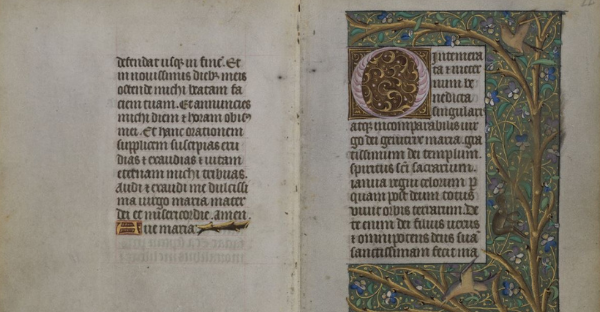 defendat usq; in fine. Et
in novissimis dieb; meis
ostende michi beatam fa
ciem tuam. Et annuncies
michi diem et horam obit9
mei. Et hanc orationem
supplicem suscipias etu
dias et exaudias et vitam
eternam michi tribuas.
Audi et exaudi me dulcissi
ma virgo maria mater
dei et misericordie. amen
Ave maria
O intemera
ta et in eter
num be
nedicta
singulari
atq; incomparabilis vir
go dei genitrix maria. gra
tissimum dei templum.
spiritus sci sacrarium.
ianua regni celorum p
quam post deum totus
vivit orbis terrarum. De
te enim dei filius verus
et omnipotens deus sua
sanctissimam fecit ma